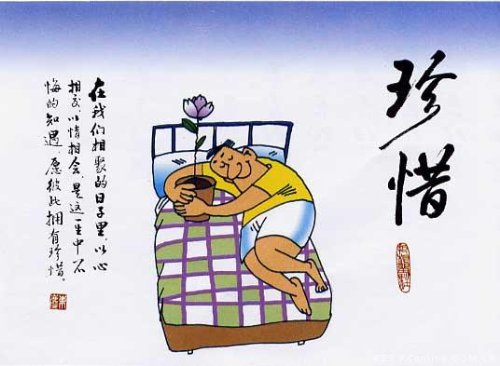 珍惜
在我们相聚的日子里，以心
相交，以情相会，是这一生中不
悔的知遇，愿彼此拥有珍惜。